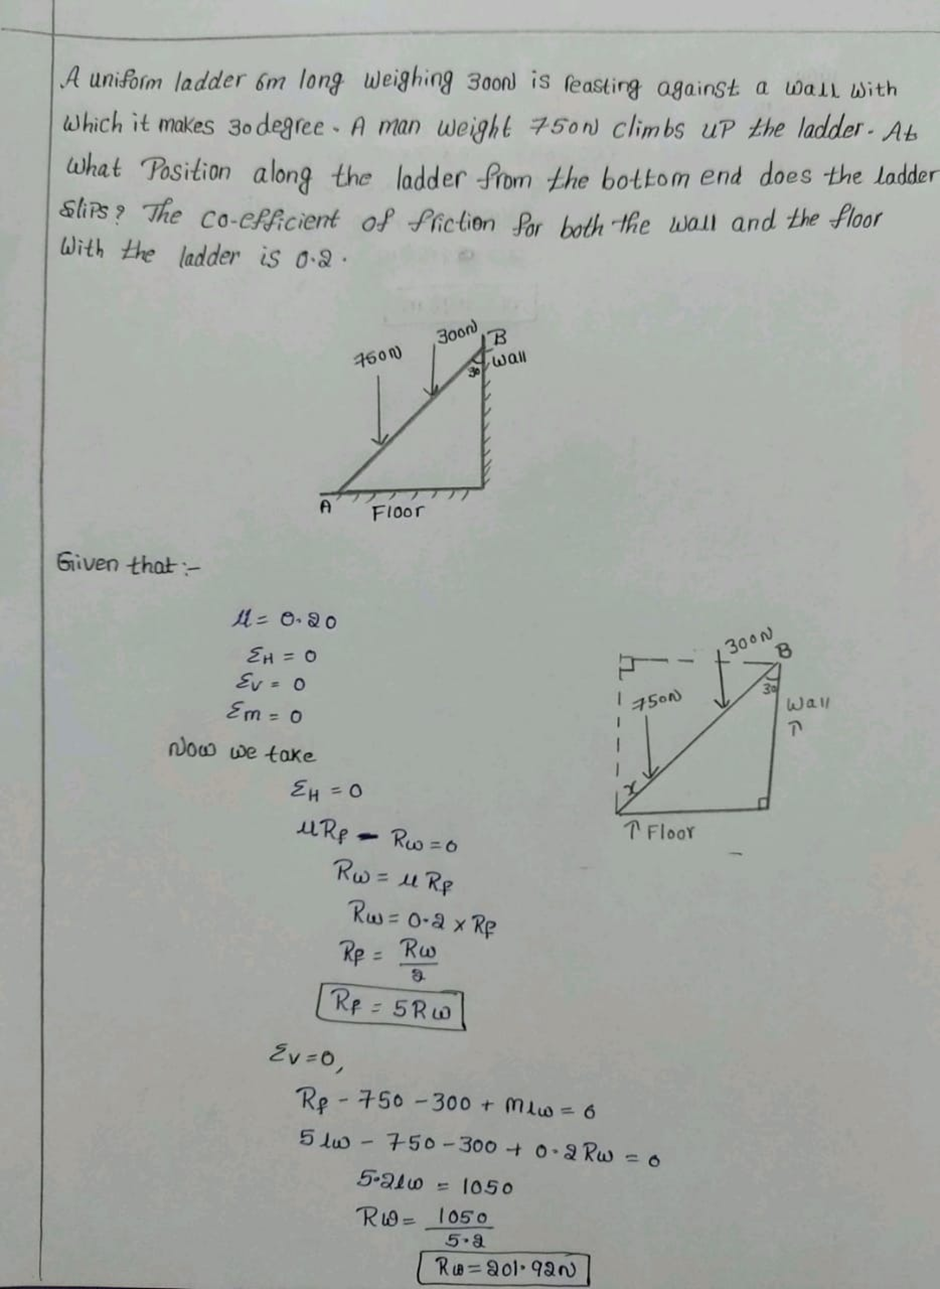 A uniform ladder 6m long weighing 300N is reasting against a wall with
which it makes 30 degree. A man weight 750N climbs up the ladder. At
what Position along the ladder from the bottom end does the ladder
slips? The co-efficient of friction for both the wall and the floor
With the ladder is 0.2.
300N B
750N
30 Wall
A
Floor
Given that:-
μ = 0.20
ΣH = 0
Σv = 0
Σm = 0
300N B
750N
30
Wall
↑
x
↑ Floor
Now we take
ΣH = 0
μRf - Rw = 0
Rw = μ Rf
Rw = 0.2 x Rf
Rf = Rw/2
Rf = 5Rw
Σv = 0,
Rf - 750 - 300 + mlw = 0
5lw - 750 - 300 + 0.2Rw = 0
5.2lw = 1050
Rw = 1050/5.2
Rw = 201.92N